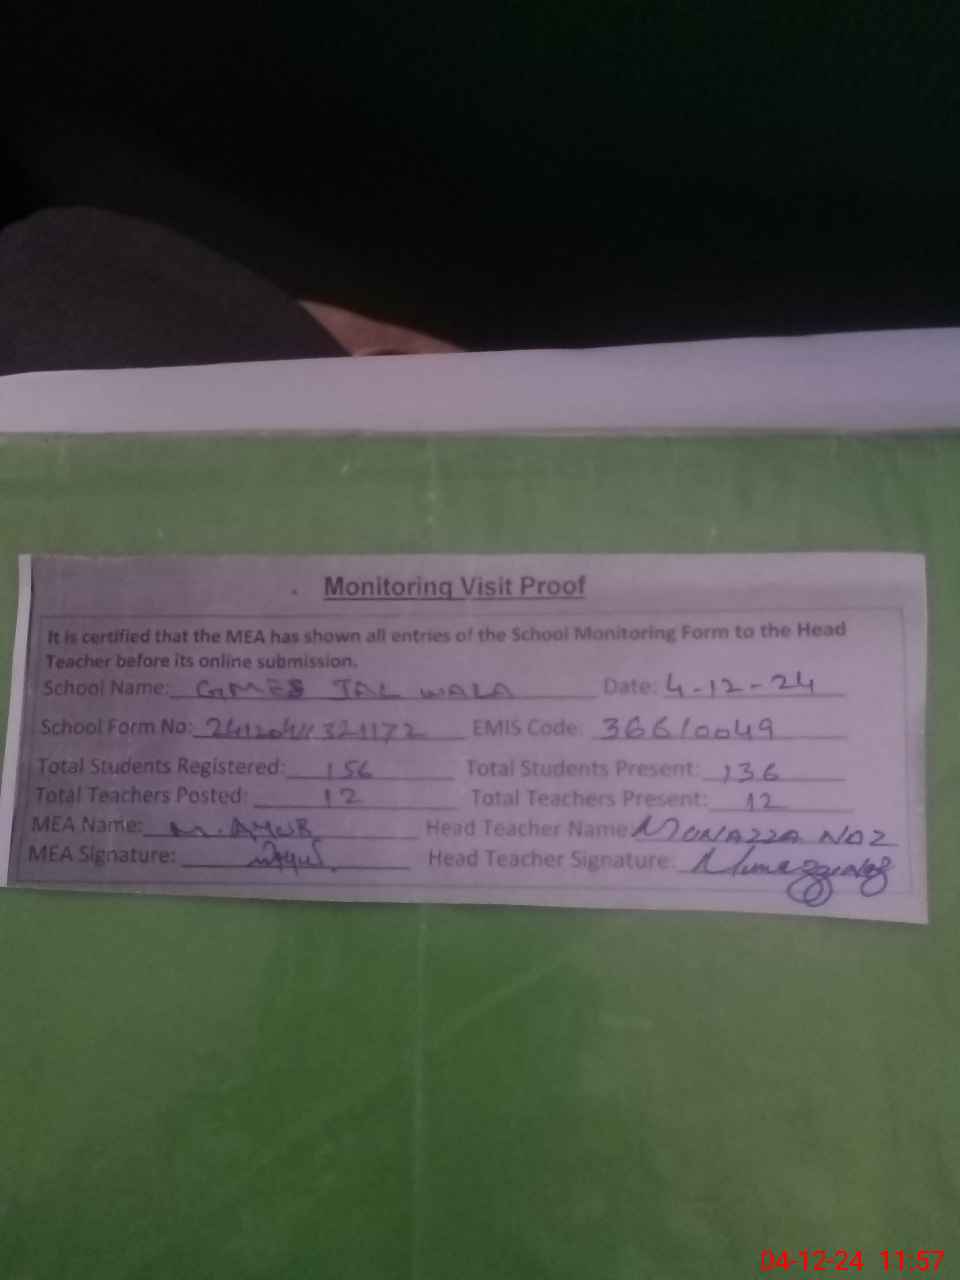 Monitoring Visit Proof
It is certified that the MEA has shown all entries of the School Monitoring Form to the Head
Teacher before its online submission.
School Name: GMES JAL WALA Date: 4-12-24
School Form No: EMIS Code: 36610049
Total Students Registered: 156 Total Students Present: 136
Total Teachers Posted: 12 Total Teachers Present: 12
MEA Name: M. AYUB Head Teacher Name: MONAZZA NAZ
MEA Signature: Head Teacher Signature:
04-12-24 11:57